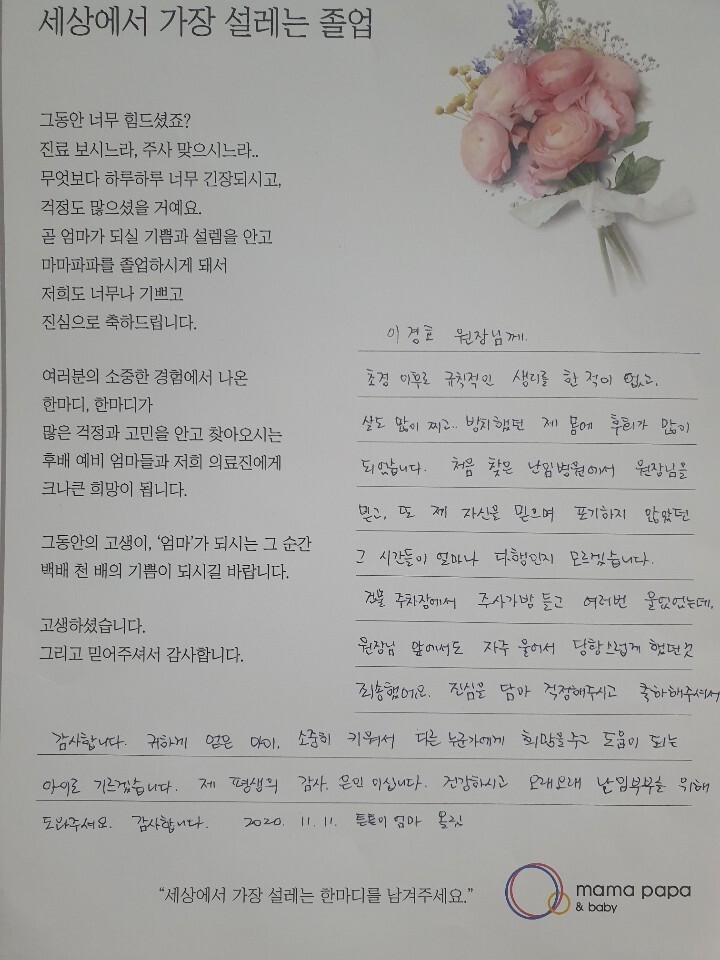 세상에서 가장 설레는 졸업
그동안 너무 힘드셨죠?
진료 보시느라, 주사 맞으시느라..
무엇보다 하루하루 너무 긴장되시고,
걱정도 많으셨을 거예요.
곧 엄마가 되실 기쁨과 설렘을 안고
마마파파를 졸업하시게 돼서
저희도 너무나 기쁘고
진심으로 축하드립니다.
여러분의 소중한 경험에서 나온
한마디, 한마디가
많은 걱정과 고민을 안고 찾아오시는
후배 예비 엄마들과 저희 의료진에게
크나큰 희망이 됩니다.
그동안의 고생이, ‘엄마’가 되시는 그 순간
백배 천 배의 기쁨이 되시길 바랍니다.
고생하셨습니다.
그리고 믿어주셔서 감사합니다.
이경호 원장님께.
초경 이후로 규칙적인 생리를 한 적이 없고,
살도 많이 찌고.. 방치했던 제 몸에 후회가 많이
되었습니다. 처음 찾은 난임병원에서 원장님을
믿고, 또 제 자신을 믿으며 포기하지 않았던
그 시간들이 얼마나 다행인지 모르겠습니다.
건물 주차장에서 주사가방 들고 여러번 울었었는데,
원장님 앞에서도 자주 울어서 당황스럽게 했던것
죄송했어요. 진심을 담아 걱정해주시고 축하해주셔서
감사합니다. 귀하게 얻은 아이, 소중히 키워서 다른 누군가에게 희망을주고 도움이 되는
아이로 기르겠습니다. 제 평생의 감사, 은인 이십니다. 건강하시고 오래오래 난임부부를 위해
도와주세요. 감사합니다. 2020. 11. 11. 튼튼이 엄마 올림
“세상에서 가장 설레는 한마디를 남겨주세요.”
mama papa
& baby